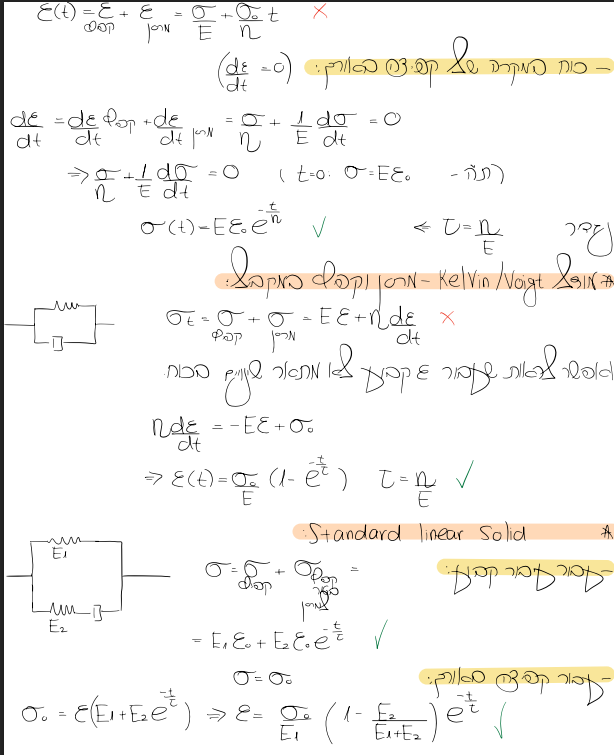 ε(t) = ε קפיץ + ε מרסן = σ/E + σ₀/η t ✗
- כוח במקרה של קפיצה באורך: (dε/dt = 0)
dε/dt = dε/dt קפיץ + dε/dt מרסן = σ/η + 1/E dσ/dt = 0
⇒ σ/η + 1/E dσ/dt = 0 (t=0: σ=Eε₀ -
נגדיר τ = η/E ⇐ σ(t) = Eε₀e^(-t/η) ✓
* מודל Kelvin/Voigt - מרסן וקפיץ במקביל:
σt = σ קפיץ + σ מרסן = Eε + η dε/dt ✗
אפשר לראות שעבור ε קבוע לא מתאר שינויים בכוח.
η dε/dt = -Eε + σ₀
⇒ ε(t) = σ₀/E (1 - e^(-t/τ)) τ = η/E ✓
* Standard linear Solid:
E₁
E₂
- עבור עיבור קבוע:
σ = σ קפיץ + σ קפיץ בטור למרסן =
= E₁ε₀ + E₂ε₀e^(-t/τ) ✓
- עבור קפיצה באורך:
σ = σ₀
σ₀ = ε(E₁+E₂e^(-t/τ)) ⇒ ε = σ₀/E₁ (1 - E₂/(E₁+E₂)) e^(-t/τ) ✓